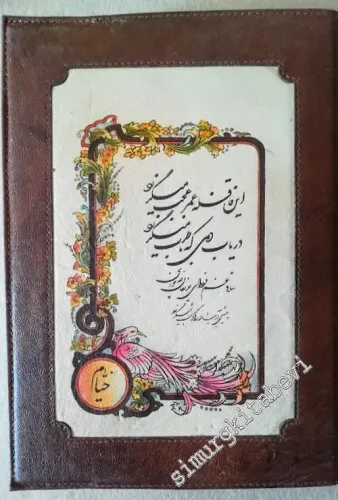 این قافله عمر عجب میگذرد
دریاب دمی که با طرب میگذرد
ساقی غم فردای حریفان چه خوری
پیش آر پیاله را که شب میگذرد
خیام
simurgkitabevi.com